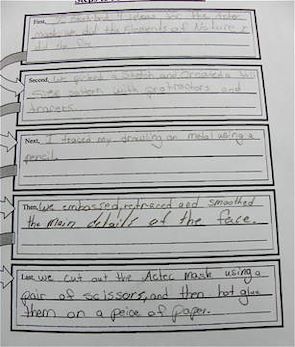 First, I sketched 4 ideas for the Aztec
mask. we did the Elements of Nature. I
did
Second, we picked a sketch, and created a full
size pattern with protractors and
Next, I traced my drawling on metal using a
pencil.
Then, we embossed, retraced and smoothed
the main details of the face.
Last, we cut out the Aztec mask using a
pair of scissors, and then hot glue
them on a peice of paper.